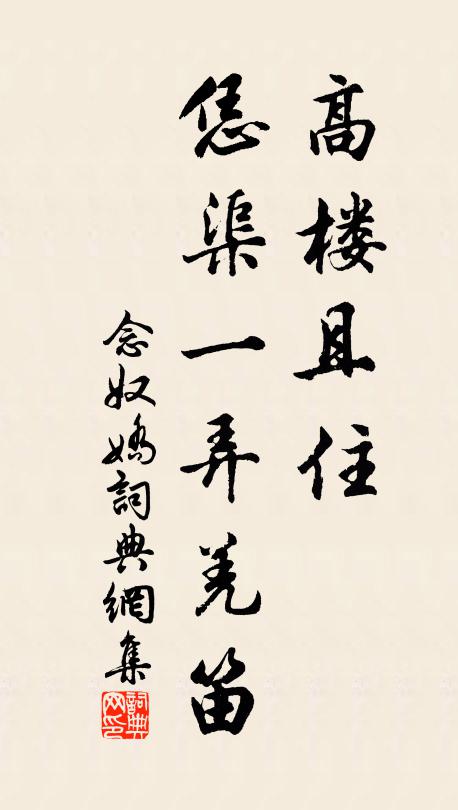 高楼且住
恁渠一弄羌笛
念奴嬌詞典網集
詞典网印